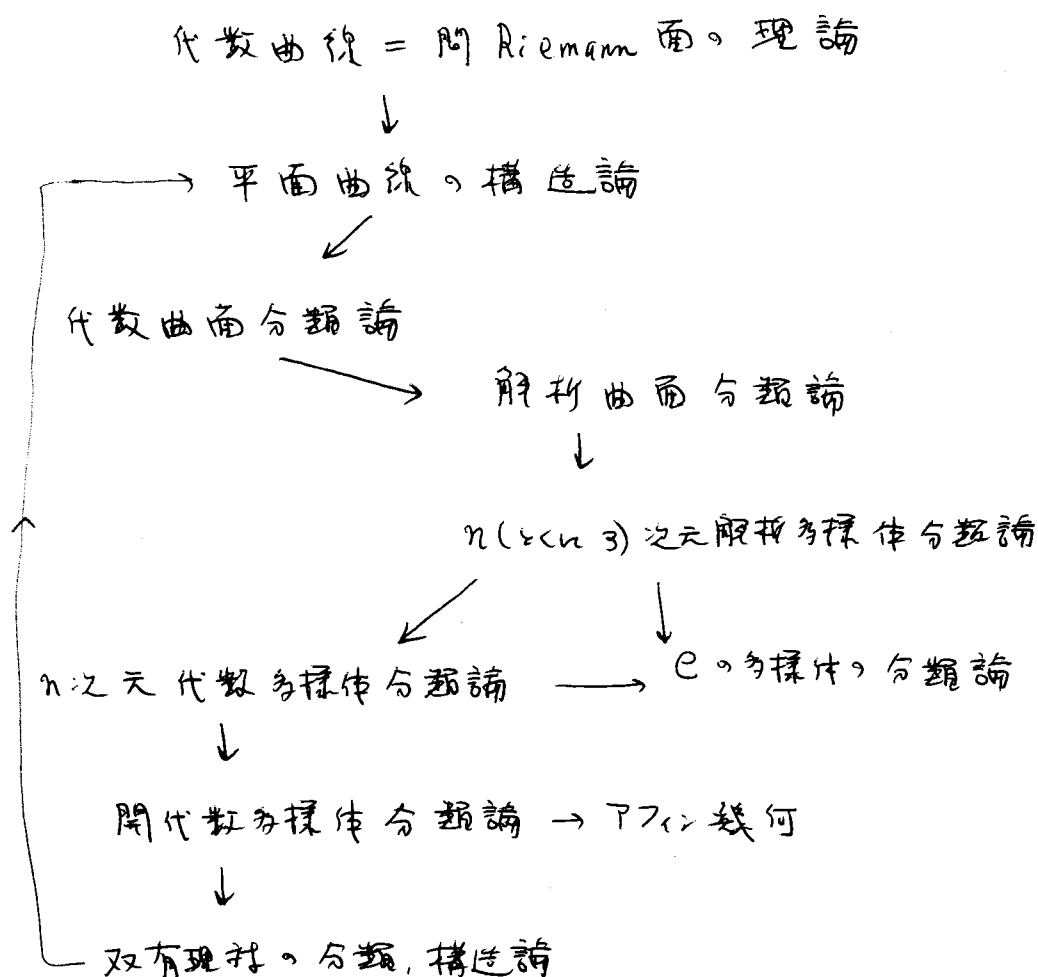 代数曲線 = 閉 Riemann 面の理論
↓
→ 平面曲線の構造論
↙
代数曲面分類論
↘
解析曲面分類論
↓
n(とくに3)次元解析多様体分類論
↙ ↓
n次元代数多様体分類論 → Cの多様体の分類論
↓
開代数多様体分類論 → アフィン幾何
↓
双有理対の分類, 構造論